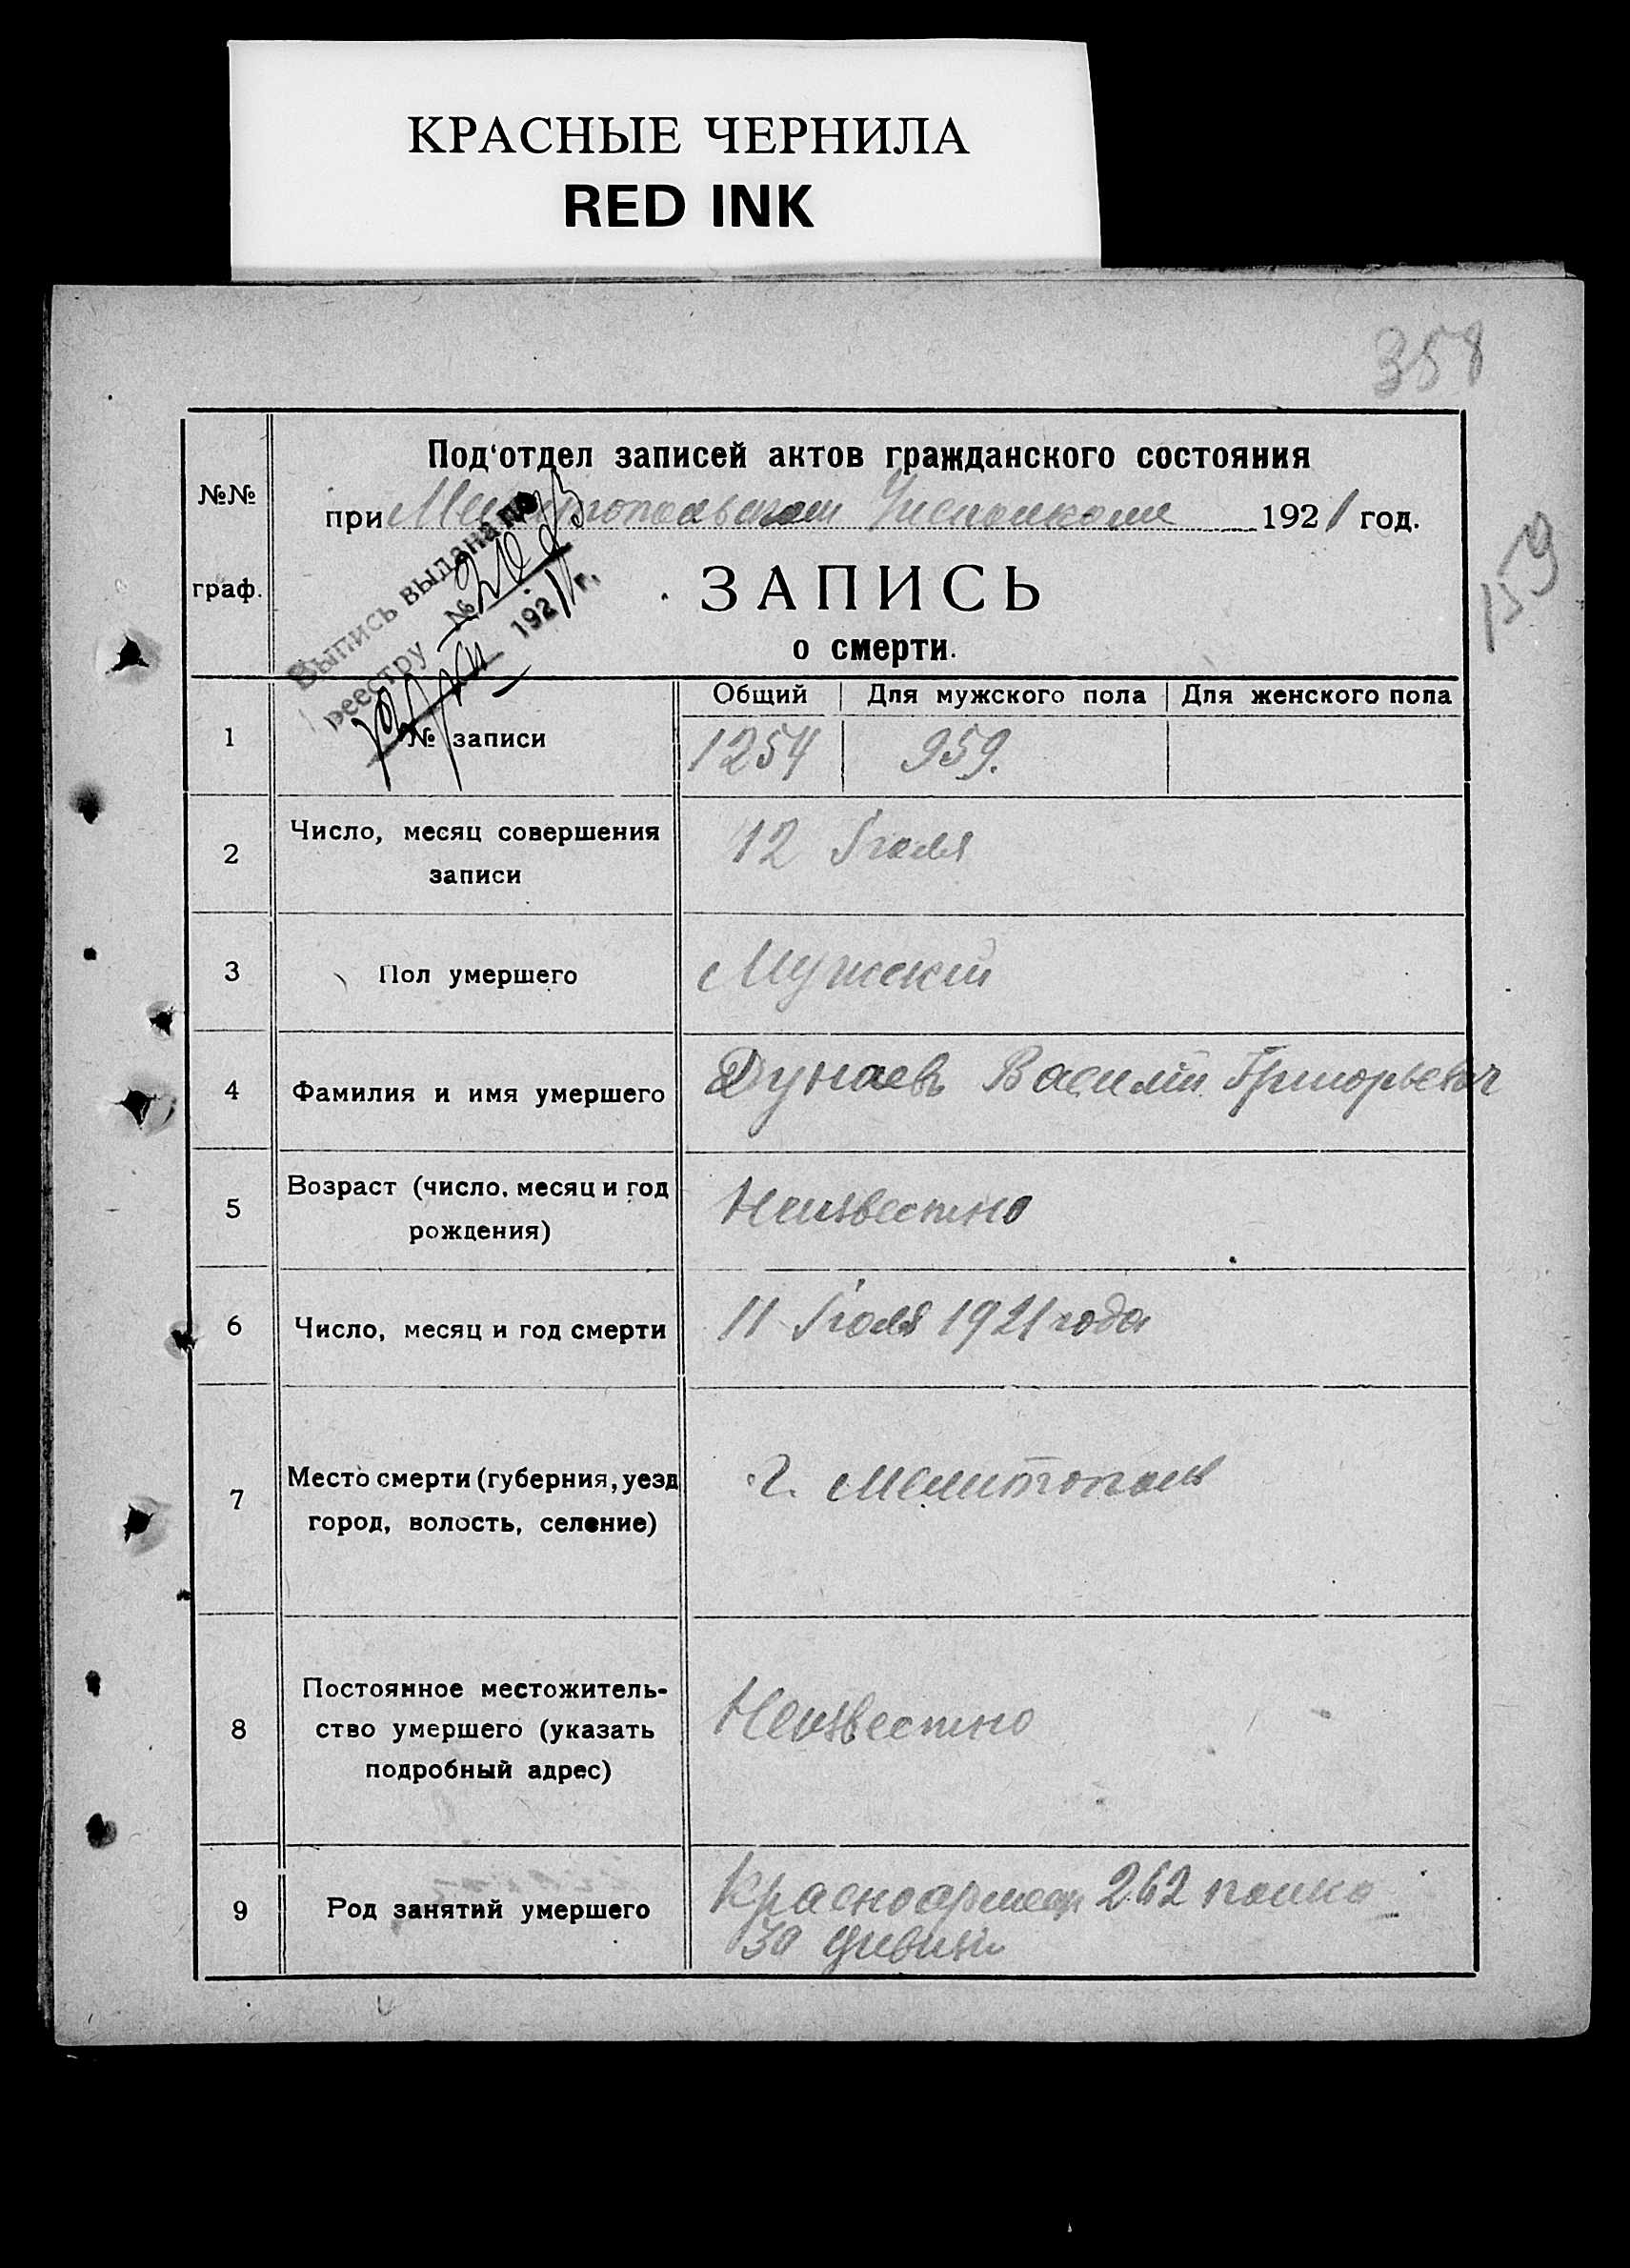 КРАСНЫЕ ЧЕРНИЛА
RED INK
358
Под'отдел записей актов гражданского состояния
№№
при Мелитопольском Исполкоме 1921 год.
159
граф.
ЗАПИСЬ
о смерти.
Выпись выдана по
реестру №
1921 г.
Общий Для мужского пола Для женского пола
1 № записи 1254 959.
2 Число, месяц совершения
записи
12 Июля
3 Пол умершего Мужской
4 Фамилия и имя умершего Дунаевъ Василий Григорьевич
5 Возраст (число, месяц и год
рождения)
Неизвестно
6 Число, месяц и год смерти 11 Июля 1921 года
7 Место смерти (губерния, уезд
город, волость, селение)
г. Мелитополь
8 Постоянное местожитель-
ство умершего (указать
подробный адрес)
Неизвестно
9 Род занятий умершего Красноармеец 262 полка
30 дивизии